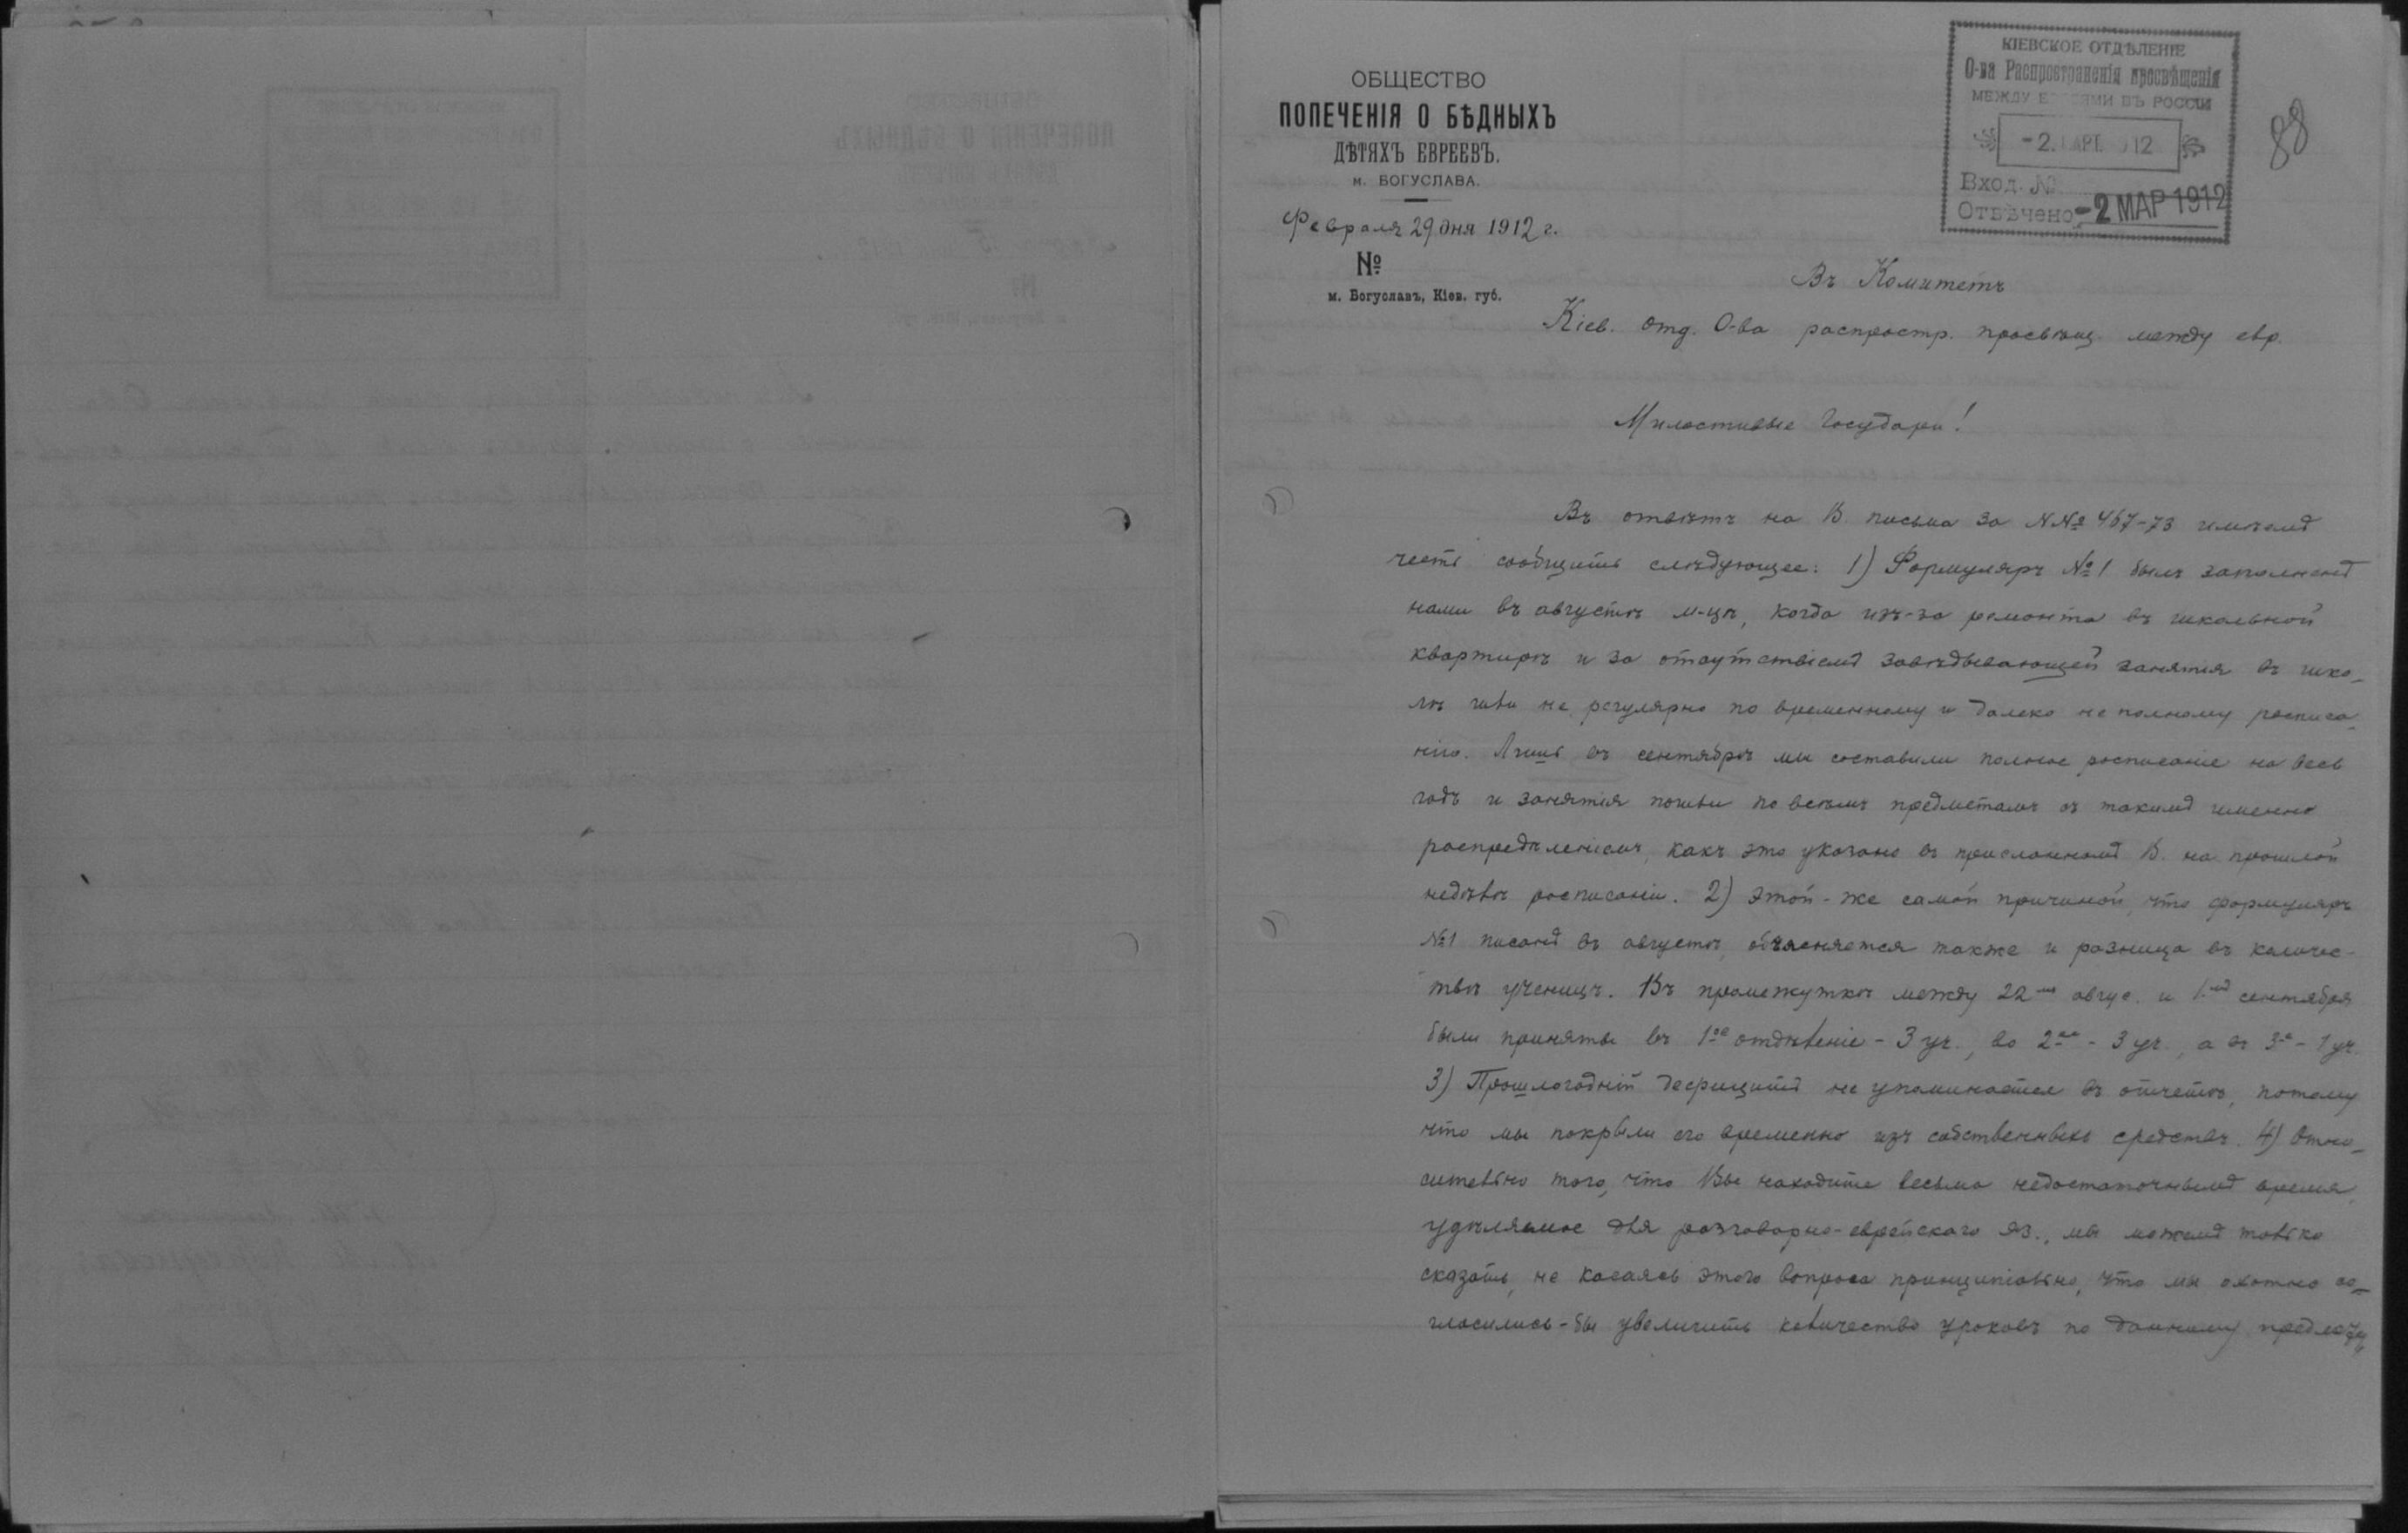 ОБЩЕСТВО
ПОПЕЧЕНІЯ О БѢДНЫХЪ
ДѢТЯХЪ ЕВРЕЕВЪ.
м. БОГУСЛАВА.
Февраля 29 дня 1912 г.
№
м. Богуславъ, Кіев. губ.
КІЕВСКОЕ ОТДѢЛЕНІЕ
О-ва Распространенія просвѣщенія
МЕЖДУ ЕВРЕЯМИ ВЪ РОССІИ
-2. МАРТ. 1912
Вход. №
Отвѣчено -2 МАР 1912
88
Въ Комитетъ
Кіев. Отд. О-ва распростр. просвѣщ. между евр.
Милостивые Государи!
Въ отвѣтъ на В. письма за №№ 467-73 имѣемъ
честь сообщить слѣдующее: 1) Формуляръ №1 былъ заполненъ
нами въ августѣ м-цѣ, когда изъ-за ремонта въ школьной
квартирѣ и за отсутствіемъ завѣдывающей занятія въ шко-
лѣ шли не регулярно по временному и далеко не полному росписа-
нію. Лишь въ сентябрѣ мы составили полное росписаніе на весь
годъ и занятія пошли по всѣмъ предметамъ съ такимъ именно
распредѣленіемъ, какъ это указано въ присланномъ В. на прошлой
недѣлѣ росписаніи. 2) Этой-же самой причиной, что формуляръ
№1 писанъ въ августѣ, объясняется также и разница въ количес-
твѣ ученицъ. Въ промежуткѣ между 22-мъ авгус. и 1-мъ сентября
были приняты въ 1-ое отдѣленіе - 3 уч., во 2-ое - 3 уч., а въ 3-е - 1 уч.
3) Прошлогодній дефицитъ не упоминается въ отчетѣ, потому
что мы покрыли его временно изъ собственныхъ средствъ. 4) Отно-
сительно того, что Вы находите весьма недостаточнымъ время,
удѣляемое для разговорно-еврейскаго яз., мы можемъ только
сказать, не касаясь этого вопроса принципіально, что мы охотно со-
гласились-бы увеличить количество уроковъ по данному предмету,